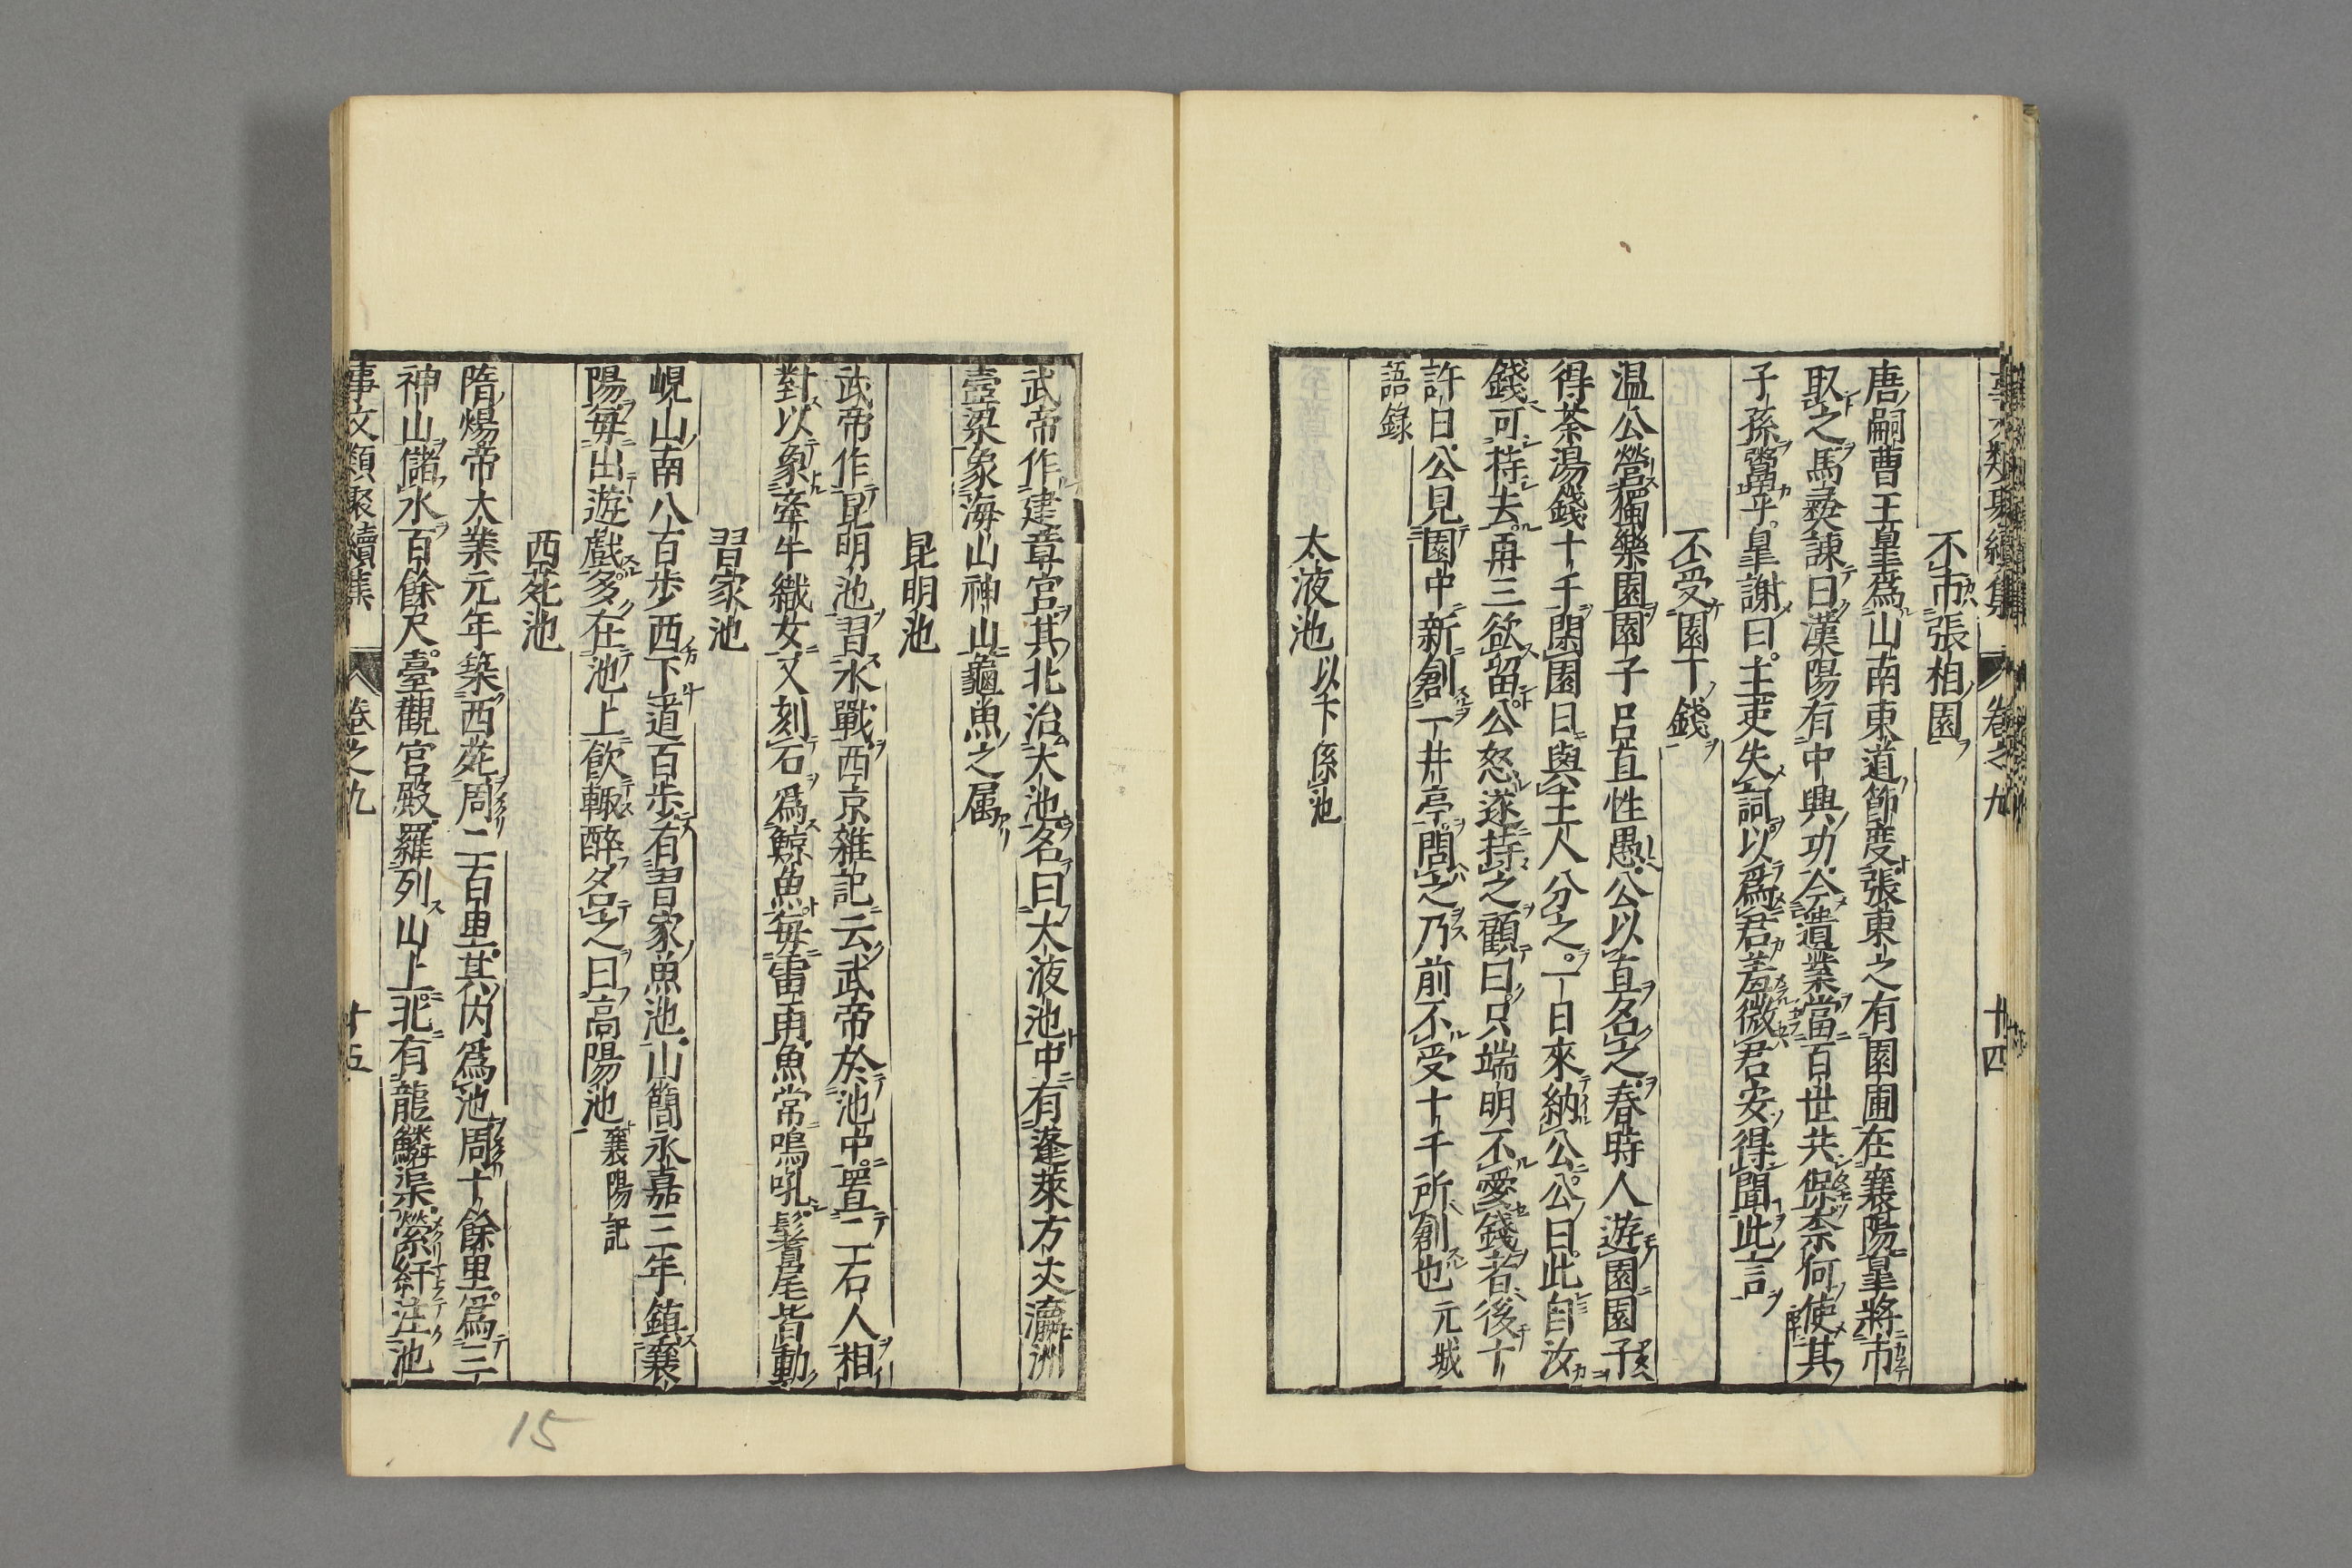 事文類聚續集 卷之九 十四
不市張相園
唐嗣曹王皐爲山南東道節度張東之有園圃在襄陽皐將市
取之馬彜諫曰漢陽有中興功今遺業當百世共保柰何使其
子孫鬻乎皐謝曰主吏失詞以爲君羞微君安得聞此言
不受園丁錢
温公營獨樂園園子呂直性愚公以直名之春時人遊園園子
得茶湯錢十千閑園日與主人分之一日來納公公曰此自汝
錢可持去再三欲留公怒遂持之顧曰只端明不愛錢者後十
許日公見園中新創一井亭問之乃前不受十千所創也元城
語錄
太液池以下係池
武帝作建章宮其北治大池名曰太液池中有蓬萊方丈瀛洲
壺梁象海山神山龜魚之属
昆明池
武帝作昆明池習水戰西京雜記云武帝於池中置二石人相
對以象牽牛織女又刻石爲鯨魚每雷雨魚常鳴吼鬐尾皆動
習家池
峴山南八百步西下道百步有習家魚池山簡永嘉三年鎮襄
陽每出遊戲多在池上飲輙醉名之曰高陽池襄陽記
西苑池
隋煬帝大業元年築西苑周二百里其內爲池周十餘里爲三
神山儲水百餘尺臺觀宮殿羅列山上北有龍鱗渠縈紆注池
事文類聚續集 卷之九 十五
15